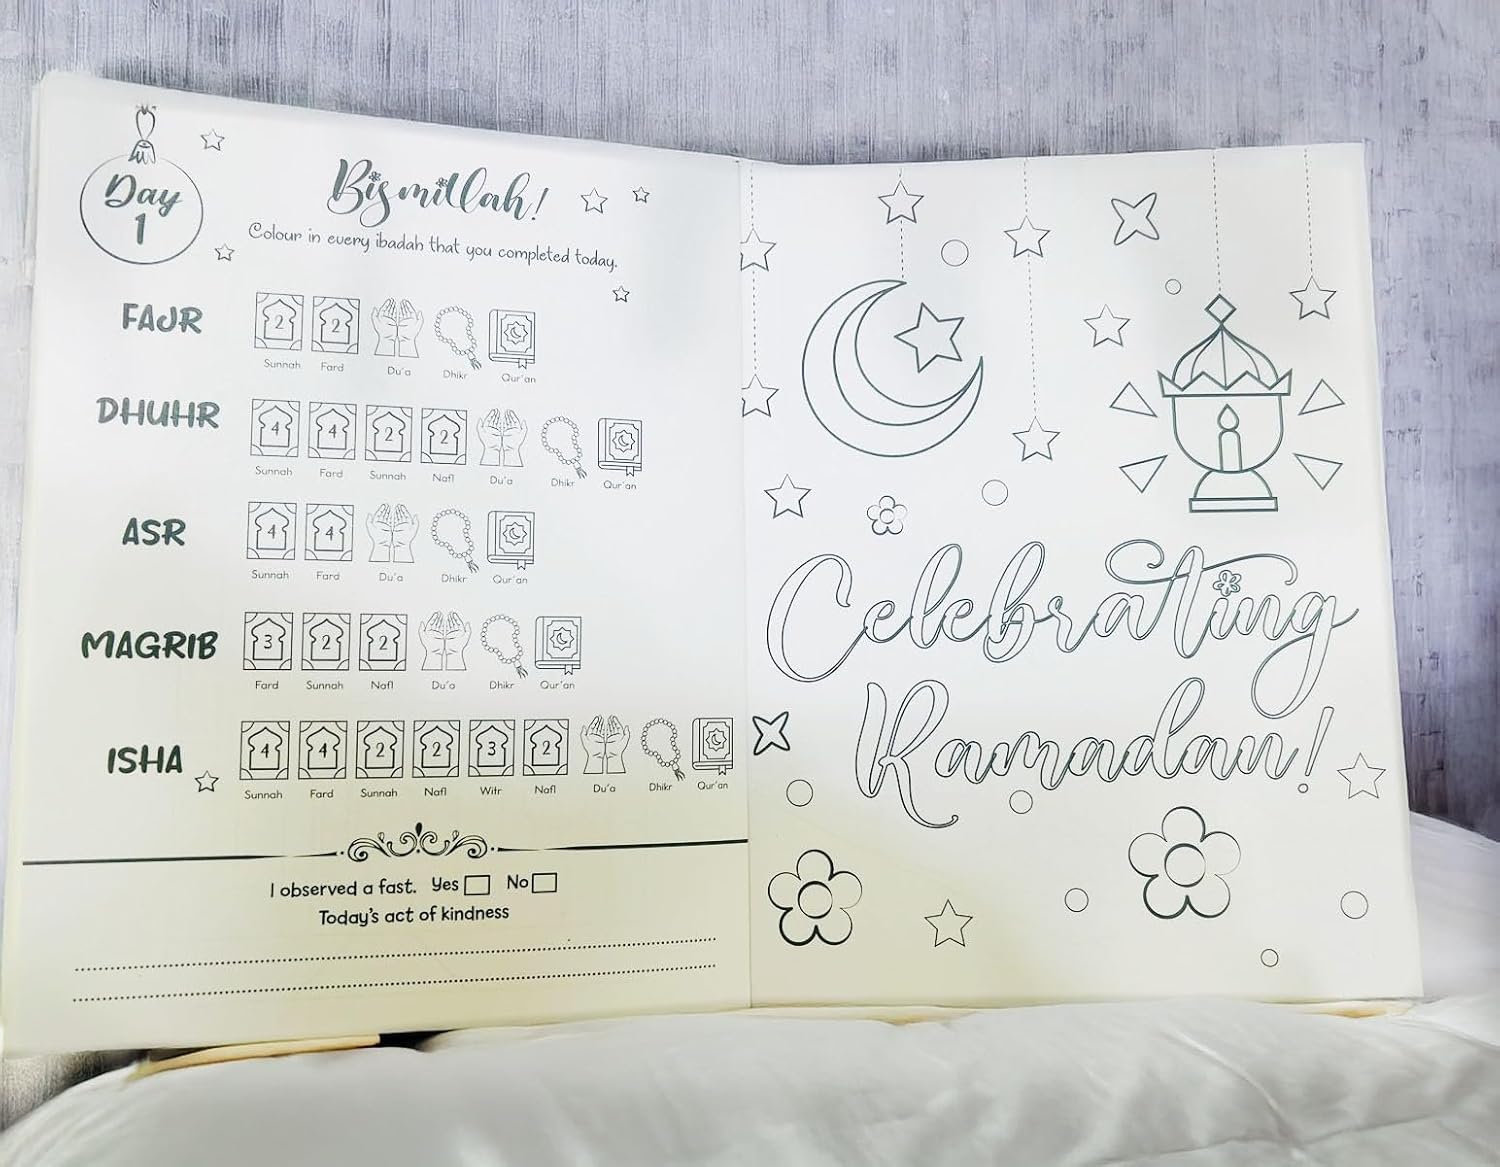 Day
1
Bismillah!
Colour in every ibadah that you completed today.
FAJR
2 2
Sunnah Fard Du'a Dhikr Qur'an
DHUHR
4 4 2 2
Sunnah Fard Sunnah Nafl Du'a Dhikr Qur'an
ASR
4 4
Sunnah Fard Du'a Dhikr Qur'an
MAGRIB
3 2 2
Fard Sunnah Nafl Du'a Dhikr Qur'an
ISHA
4 4 2 2 3 2
Sunnah Fard Sunnah Nafl Witr Nafl Du'a Dhikr Qur'an
I observed a fast. Yes No
Today's act of kindness
Celebrating
Ramadan!